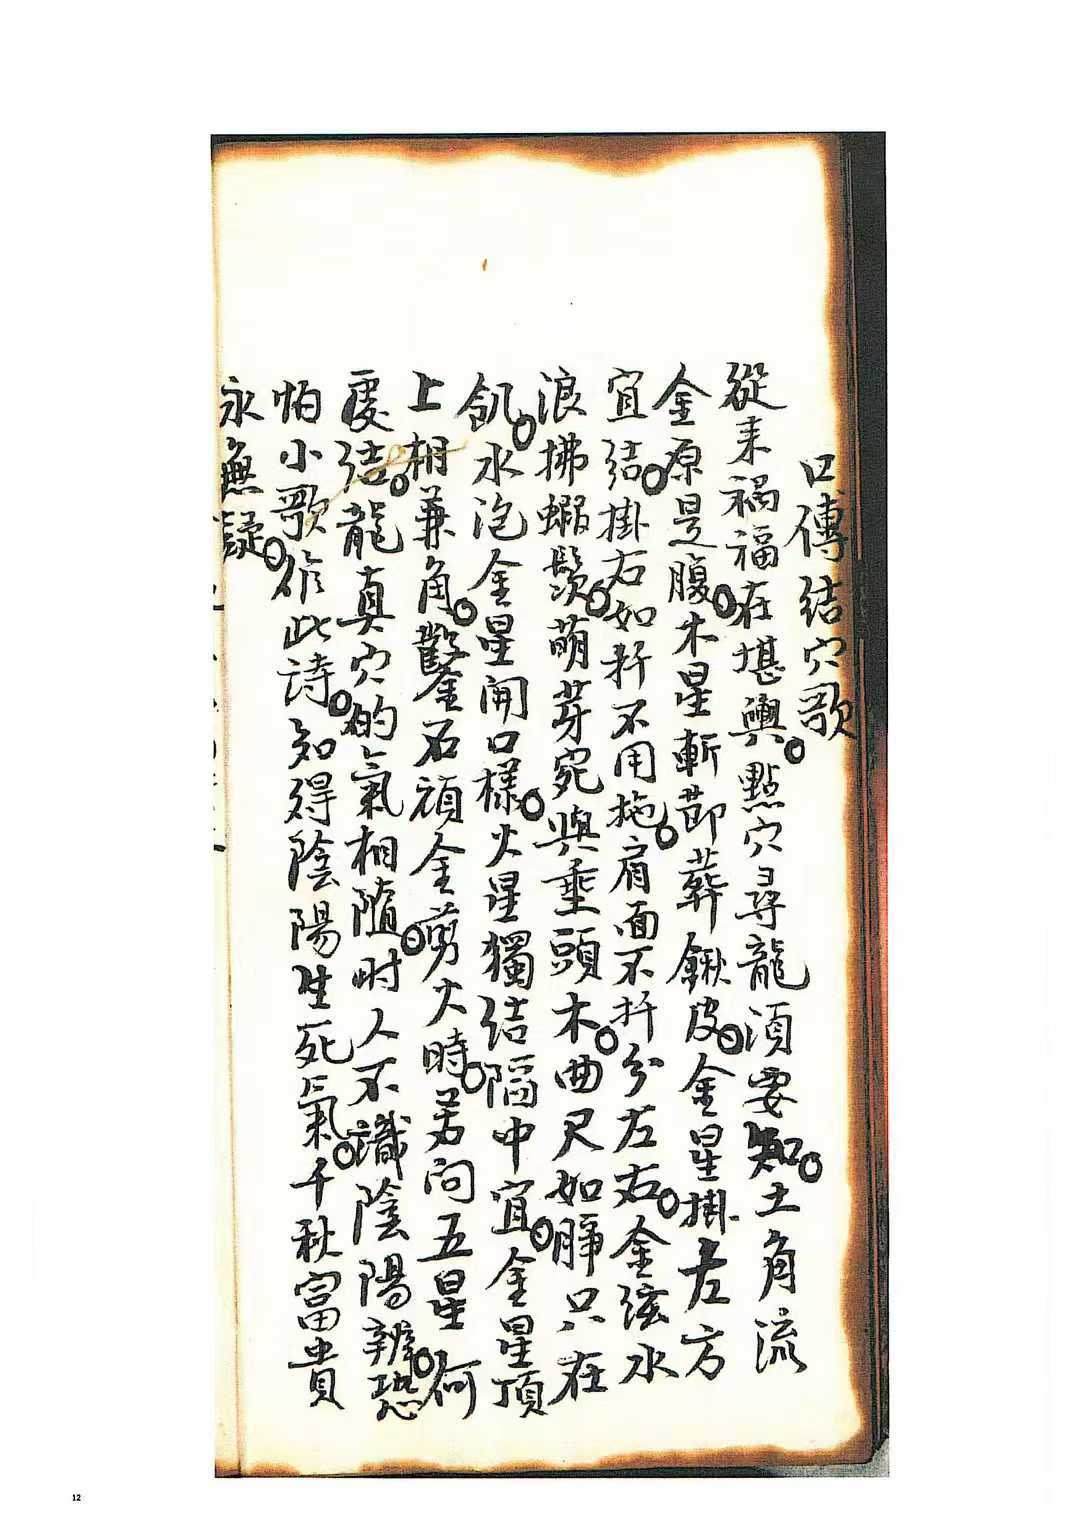 口傳結穴歌
從来禍福在堪輿。點穴尋龍湏要知。土角流
金原是腹。木星斬節葬鍬皮。金星掛左方
宜结。掛右如扦不用拖。肩面不扦分左右。金弦水
浪拂蝦鬚。萌芽宛與垂頭木。曲尺如 只在
水泡金星開口樣。火星獨结隔中宜。金星頂
上相兼角。鑿石頑金剪火時。若问五星何
處结。龍真穴的氣相随。时人不識陰陽辨。恐
怕小歌作此詩。知得陰陽生死氣。千秋富貴
永無疑。
12